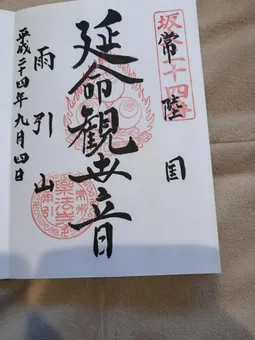 坂東二十四番
常陸国
延命観世音
雨引山
平成二十四年九月四日